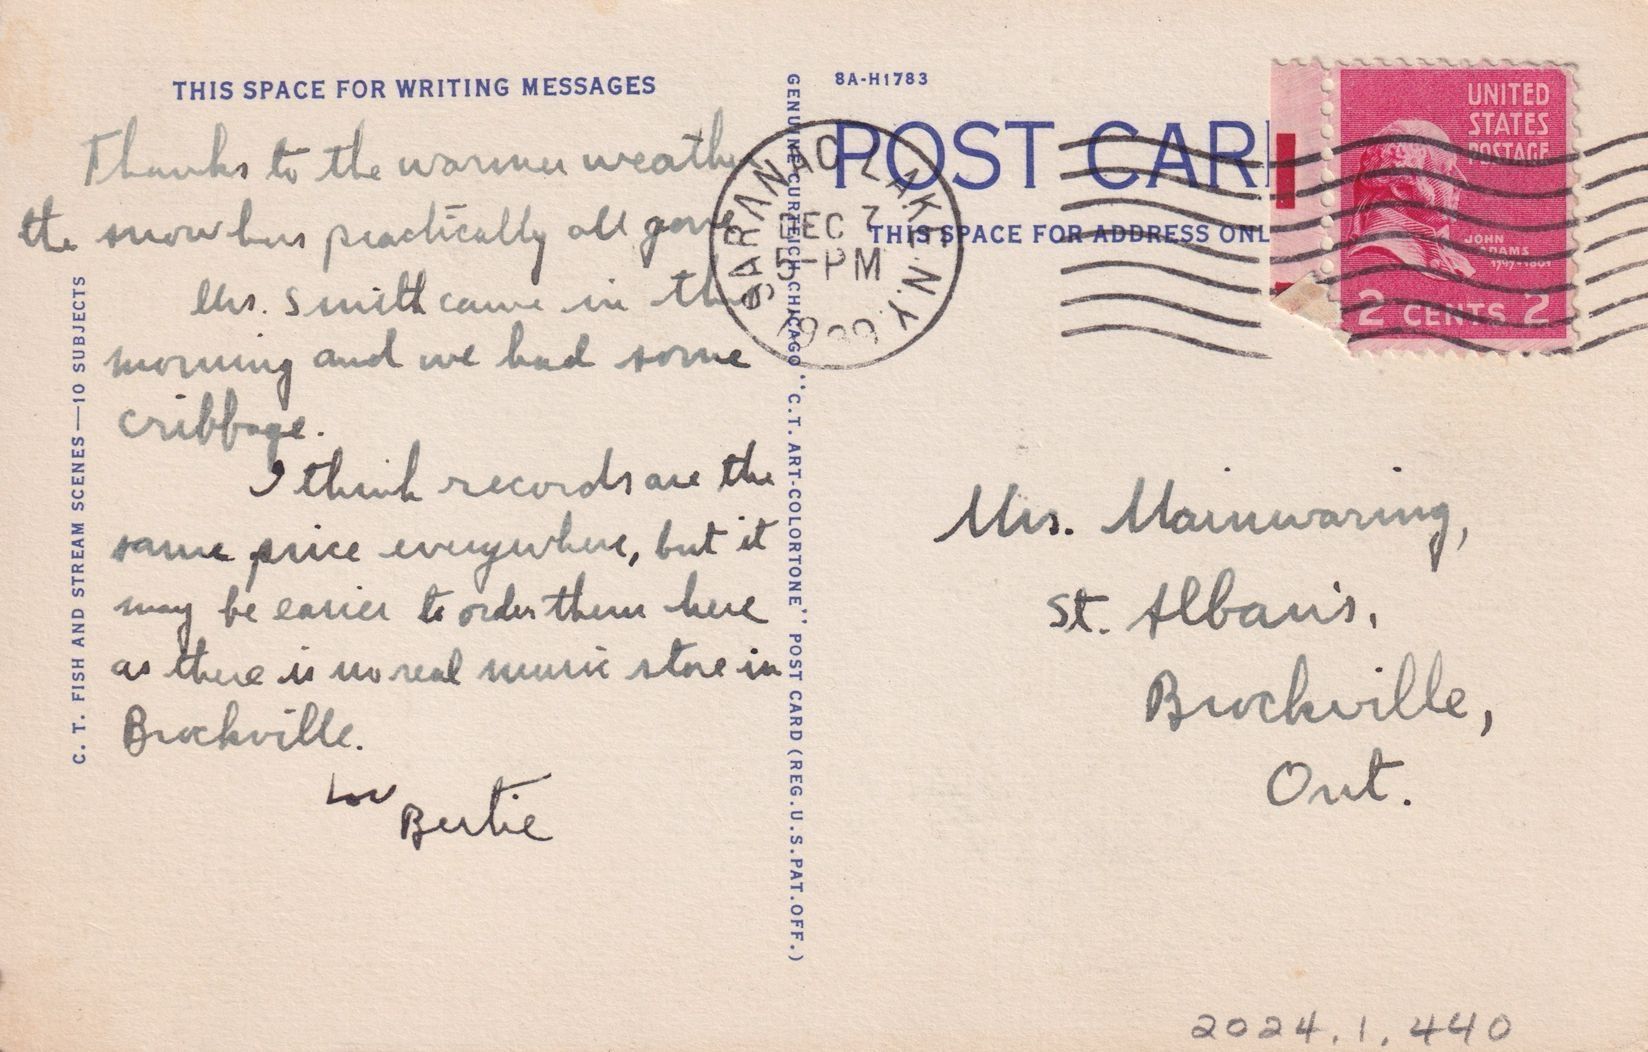 THIS SPACE FOR WRITING MESSAGES
Thanks to the warmer weather
the snow has practically all gone
Mrs. Smith came in this
morning and we had some
cribbage.
I think records are the
same price everywhere, but it
may be easier to order them here
as there is no real music store in
Brockville.
Love
Bertie
C. T. FISH AND STREAM SCENES—10 SUBJECTS
GENUINE CURTEICH-CHICAGO "C.T. ART-COLORTONE" POST CARD (REG. U.S. PAT. OFF.)
8A-H1783
POST CARD
THIS SPACE FOR ADDRESS ONL
SARANAC LAKE N.Y.
DEC 7
5-PM
1939
UNITED
STATES
POSTAGE
JOHN
ADAMS
1797-1801
2 CENTS 2
Mrs. Mainwaring,
St. Alban's,
Brockville,
Ont.
2024.1.440